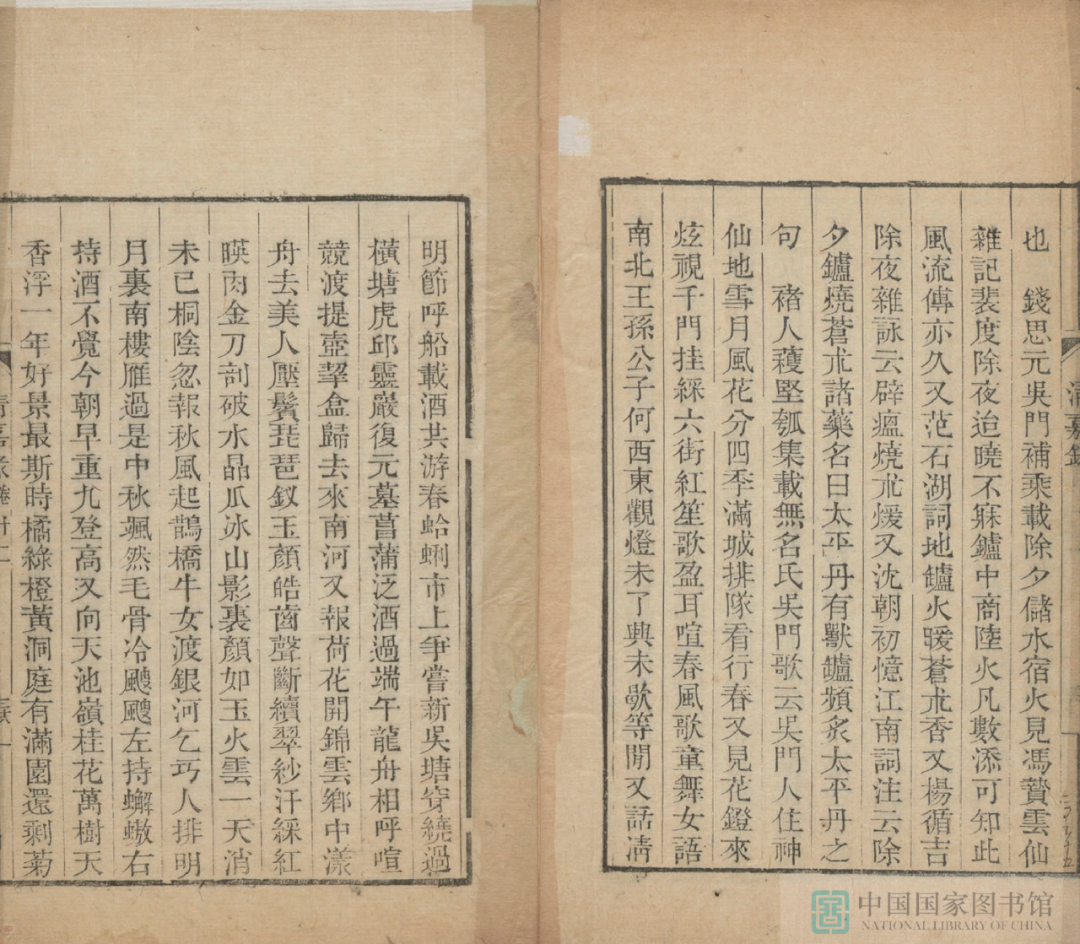 也　錢思元吳門補乘載除夕儲水宿火見馮贄雲仙
雜記裴度除夜迨曉不寐鑪中商陸火凡數添可知此
風流傳亦久又范石湖詞地鑪火暖蒼朮香又楊循吉
除夜雜詠云辟瘟燒朮煖又沈朝初憶江南詞注云除
夕鑪燒蒼朮諸藥名曰太平丹有獸鑪頻炙太平丹之
句　褚人穫堅瓠集載無名氏吳門歌云吳門人住神
仙地雪月風花分四季滿城排隊看行春又見花鐙來
炫視千門挂綵六街紅笙歌盈耳喧春風歌童舞女語
南北王孫公子何西東觀燈未了興未歇等閒又話清
明節呼船載酒共游春蛤蜊市上爭嘗新吳塘穿繞過
橫塘虎邱靈巖復元墓菖蒲泛酒過端午龍舟相呼喧
競渡提壺挈盒歸去來南河又報荷花開錦雲鄉中漾
舟去美人壓鬢琵琶釵玉顏皓齒聲斷續翠紗汗綵紅
暎肉金刀剖破水晶瓜冰山影裏顏如玉火雲一天消
未已桐陰忽報秋風起鵲橋牛女渡銀河乞巧人排明
月裏南樓雁過是中秋颯然毛骨冷颼颼左持蠏螯右
持酒不覺今朝早重九登高又向天池嶺桂花萬樹天
香浮一年好景最斯時橘綠橙黃洞庭有滿園還剩菊
清嘉錄
中国国家图书馆
NATIONAL LIBRARY OF CHINA